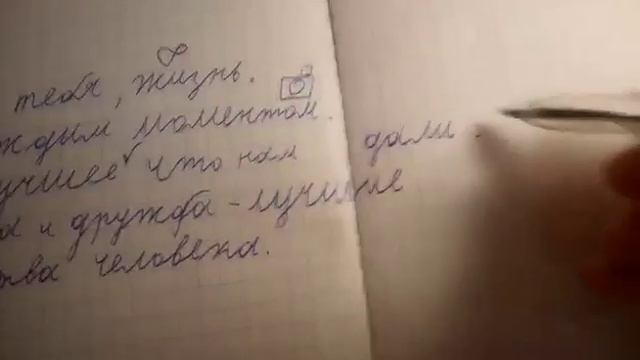 тебя, жизнь.
ждым моментом.
учшее что нам дали.
а и дружба - лучшие
ва человека.